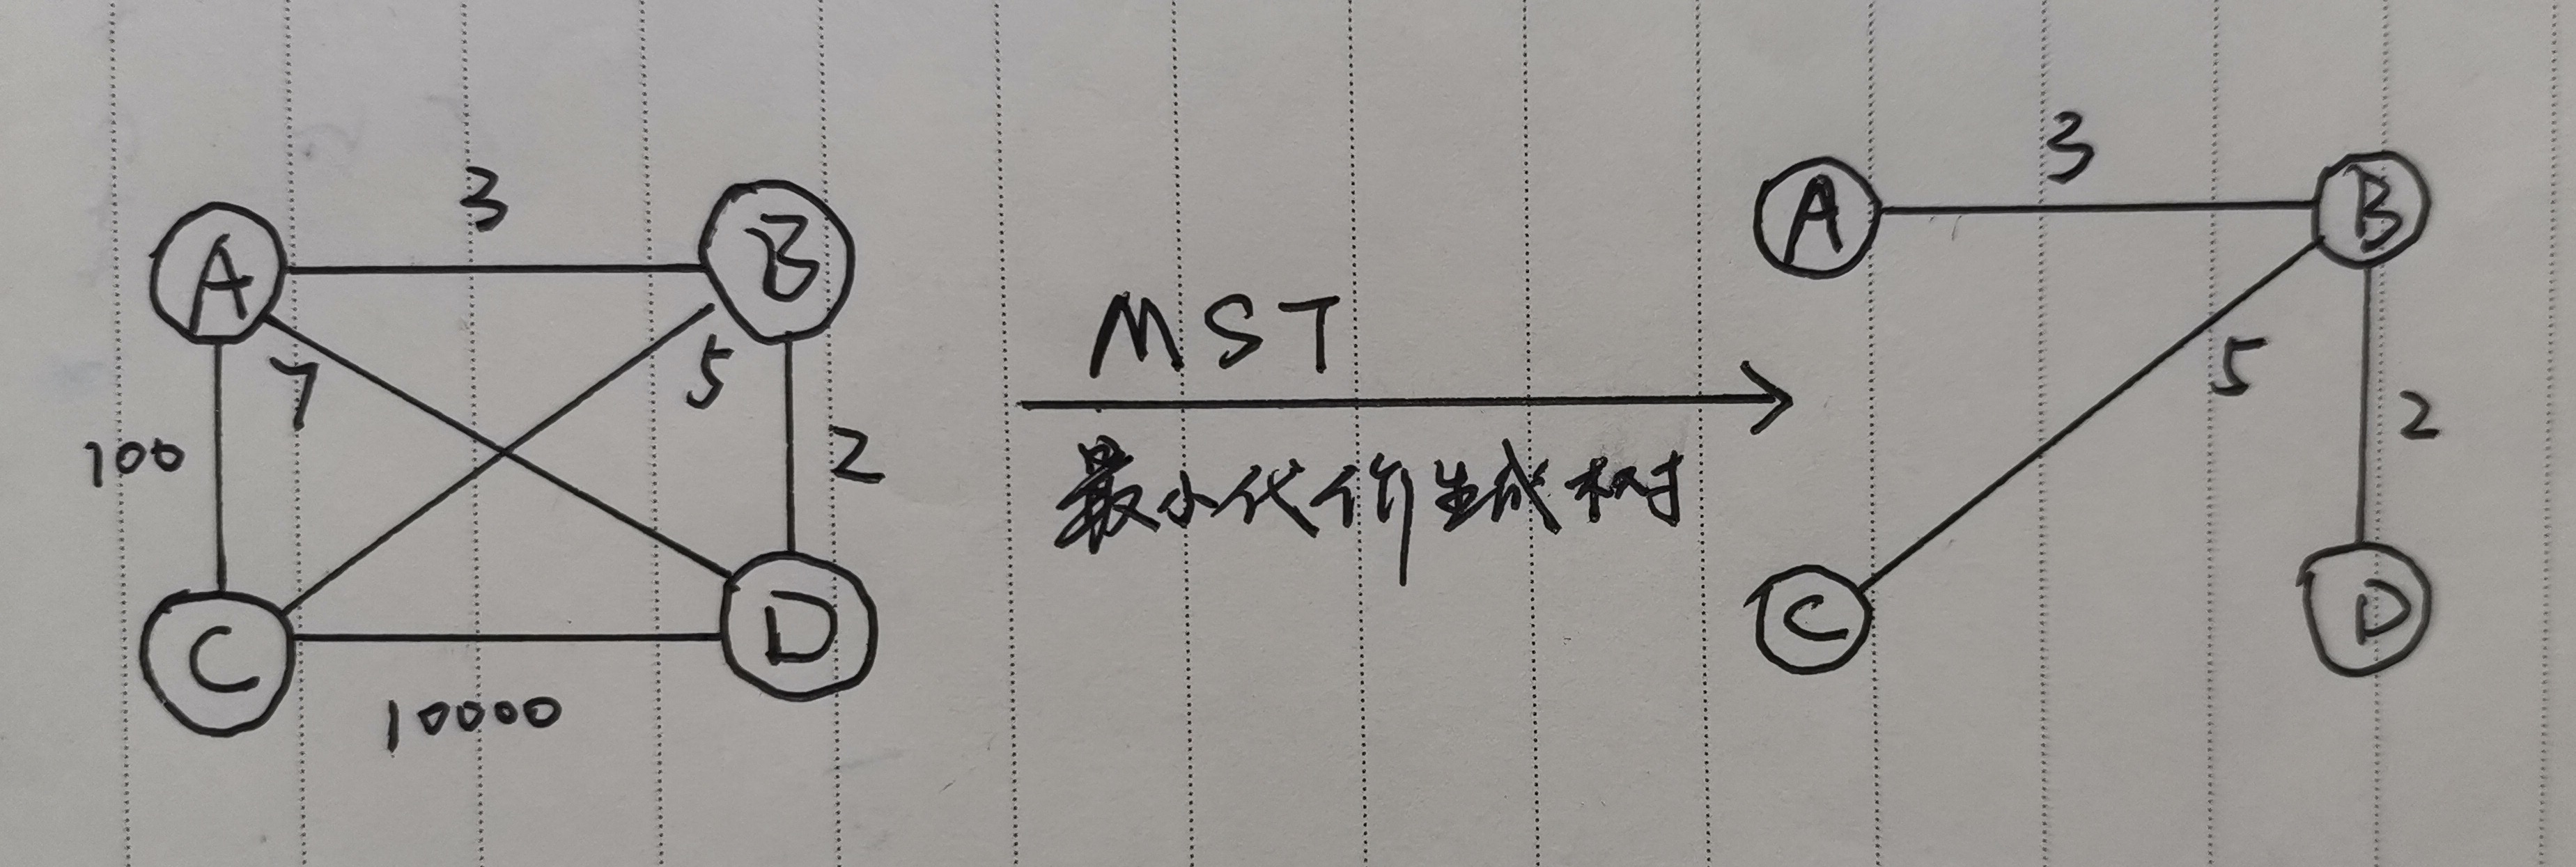 3
A B
7 5
100 2
C D
10000
MST
最小代价生成树
3
A B
5
2
C D